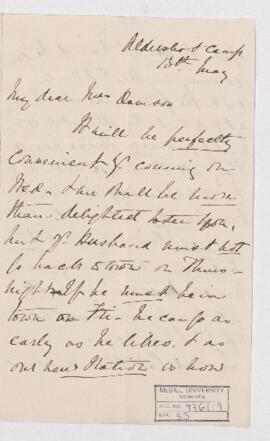 Aldershot Camp
13th May
My dear Mrs Dawson
It will be perfectly
convenient yr coming on
Wed. & we shall be more
than delighted to see you,
but yr Husband must not
go back to town on Thurs-
night. If he must be in
town on Fri. he can go as
early as he likes, & as
our new Station is now
McGILL UNIVERSITY
ARCHIVES
ACC. NO. 976/9
REF. 53